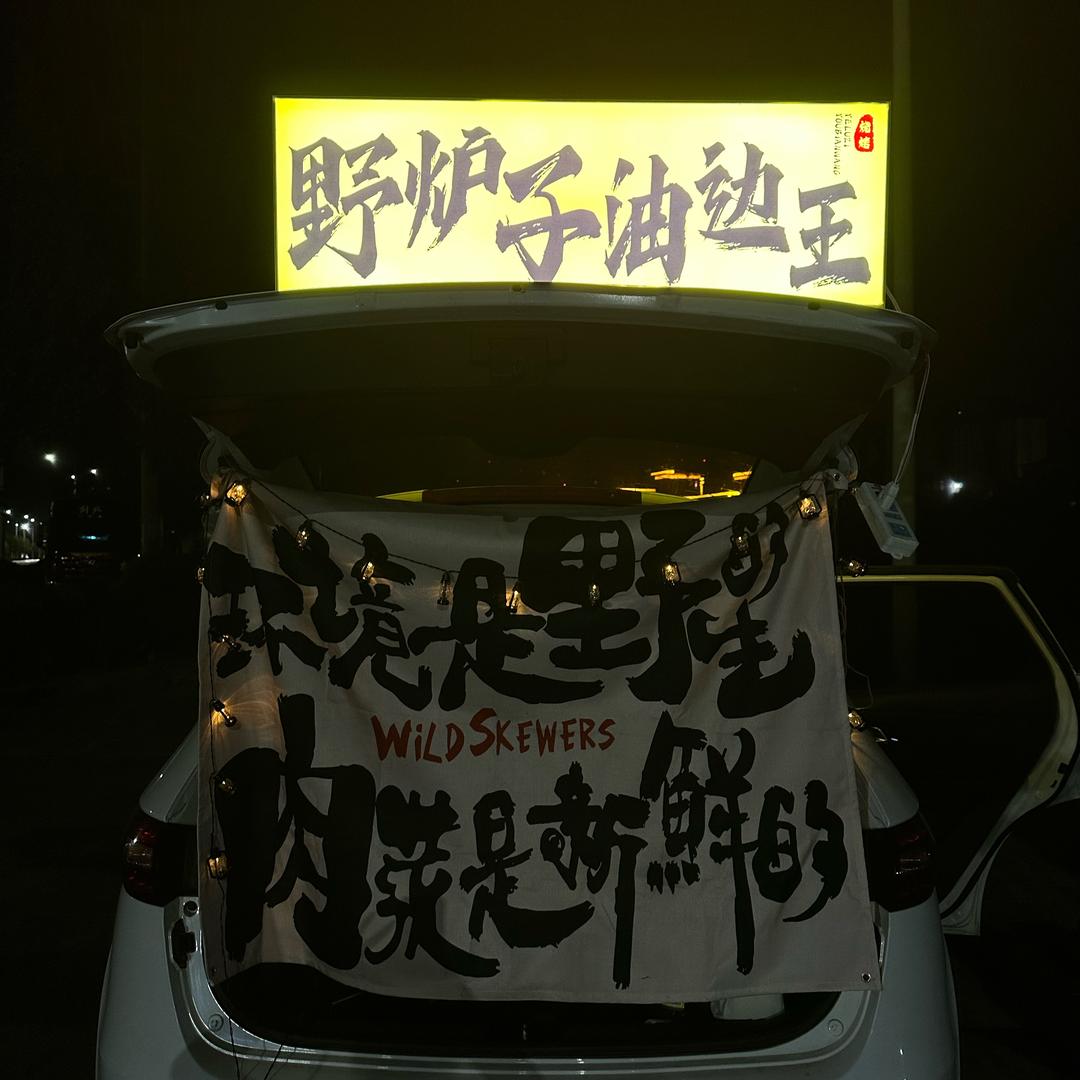 野炉子油边王
YELUZI
YOUBIANWANG
环境是野生的
WILD SKEWERS
肉菜是新鲜的